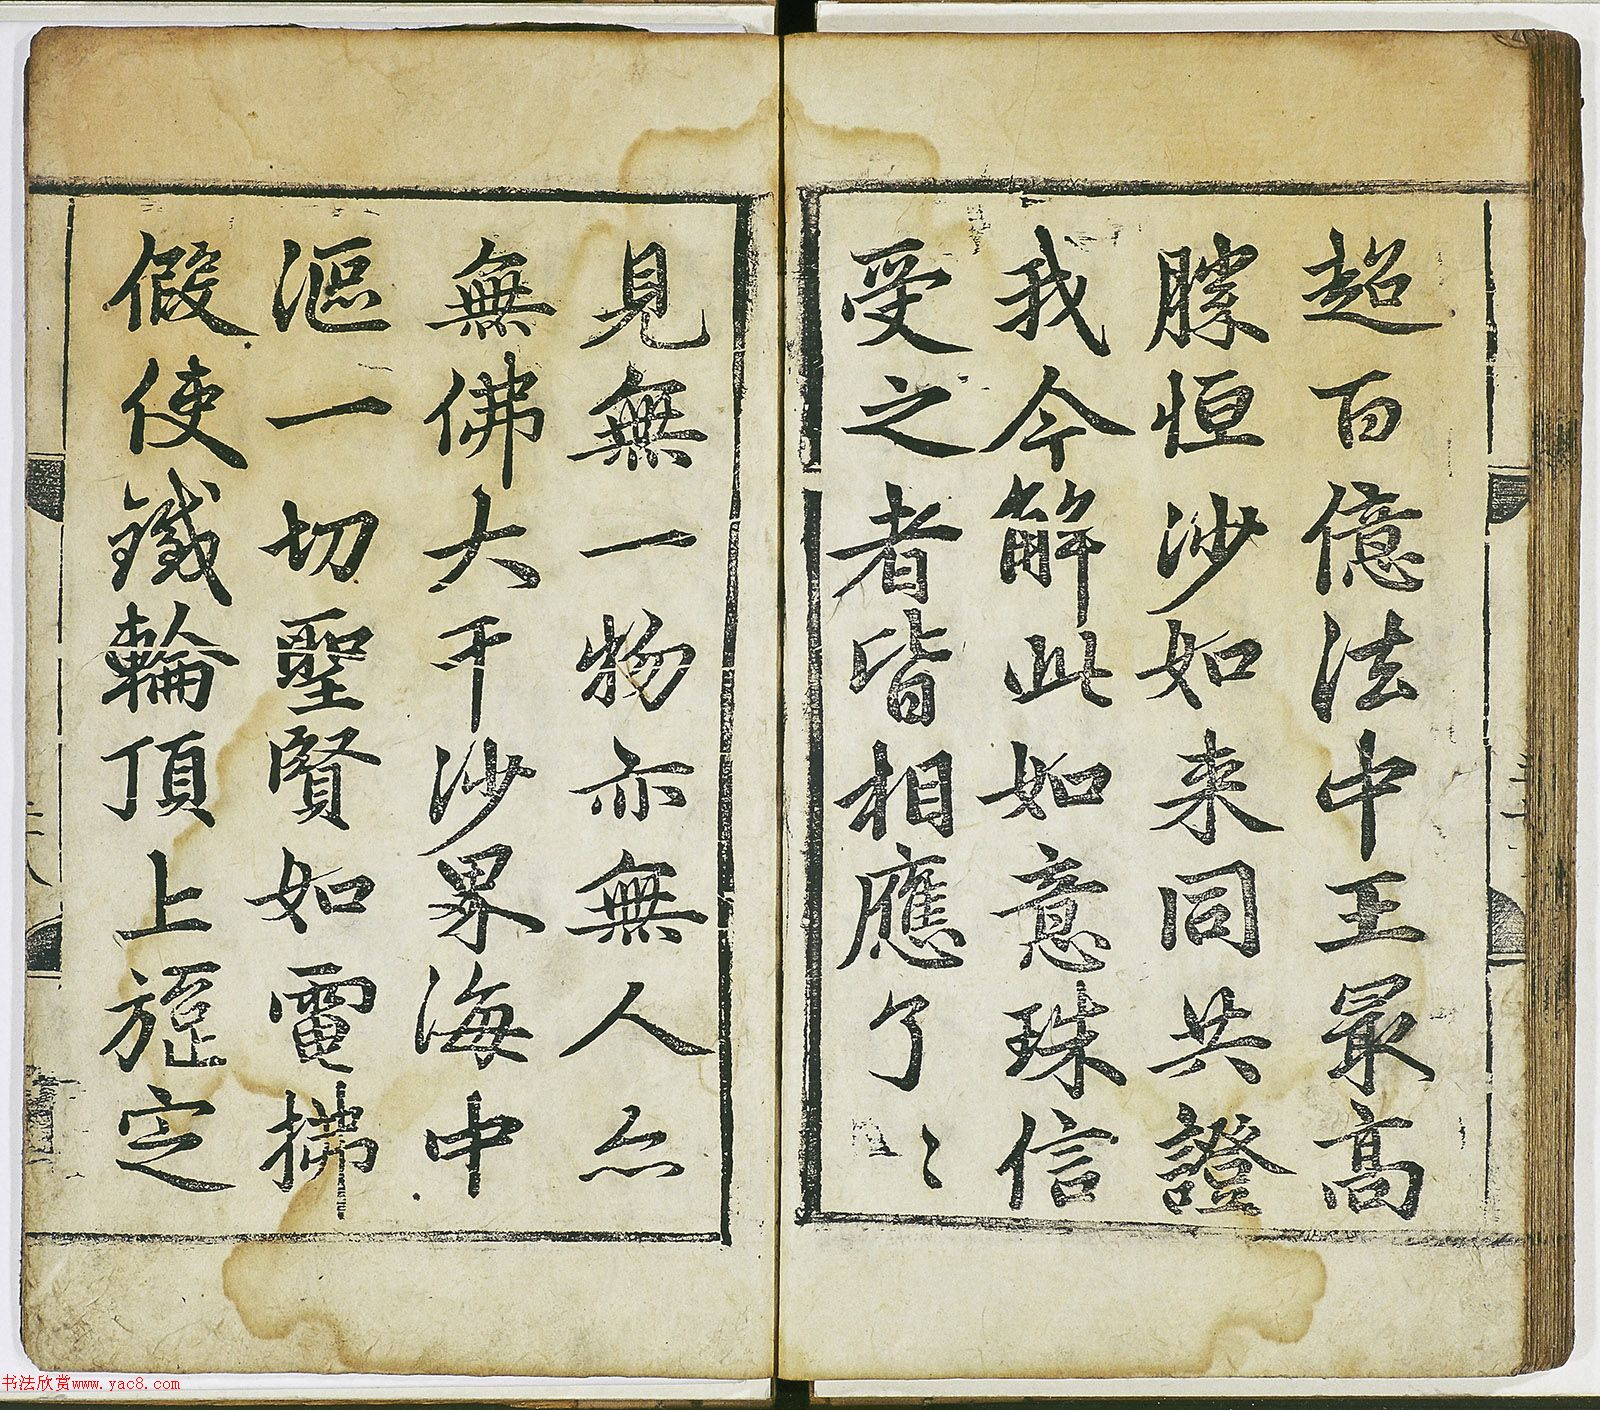 超百億法中王最高
勝恒沙如来同共證
我今解此如意珠信
受之者皆相應了〻
見無一物亦無人亦
無佛大千沙界海中
漚一切聖賢如電拂
假使鐵輪頂上旋定
书法欣赏www.yac8.com